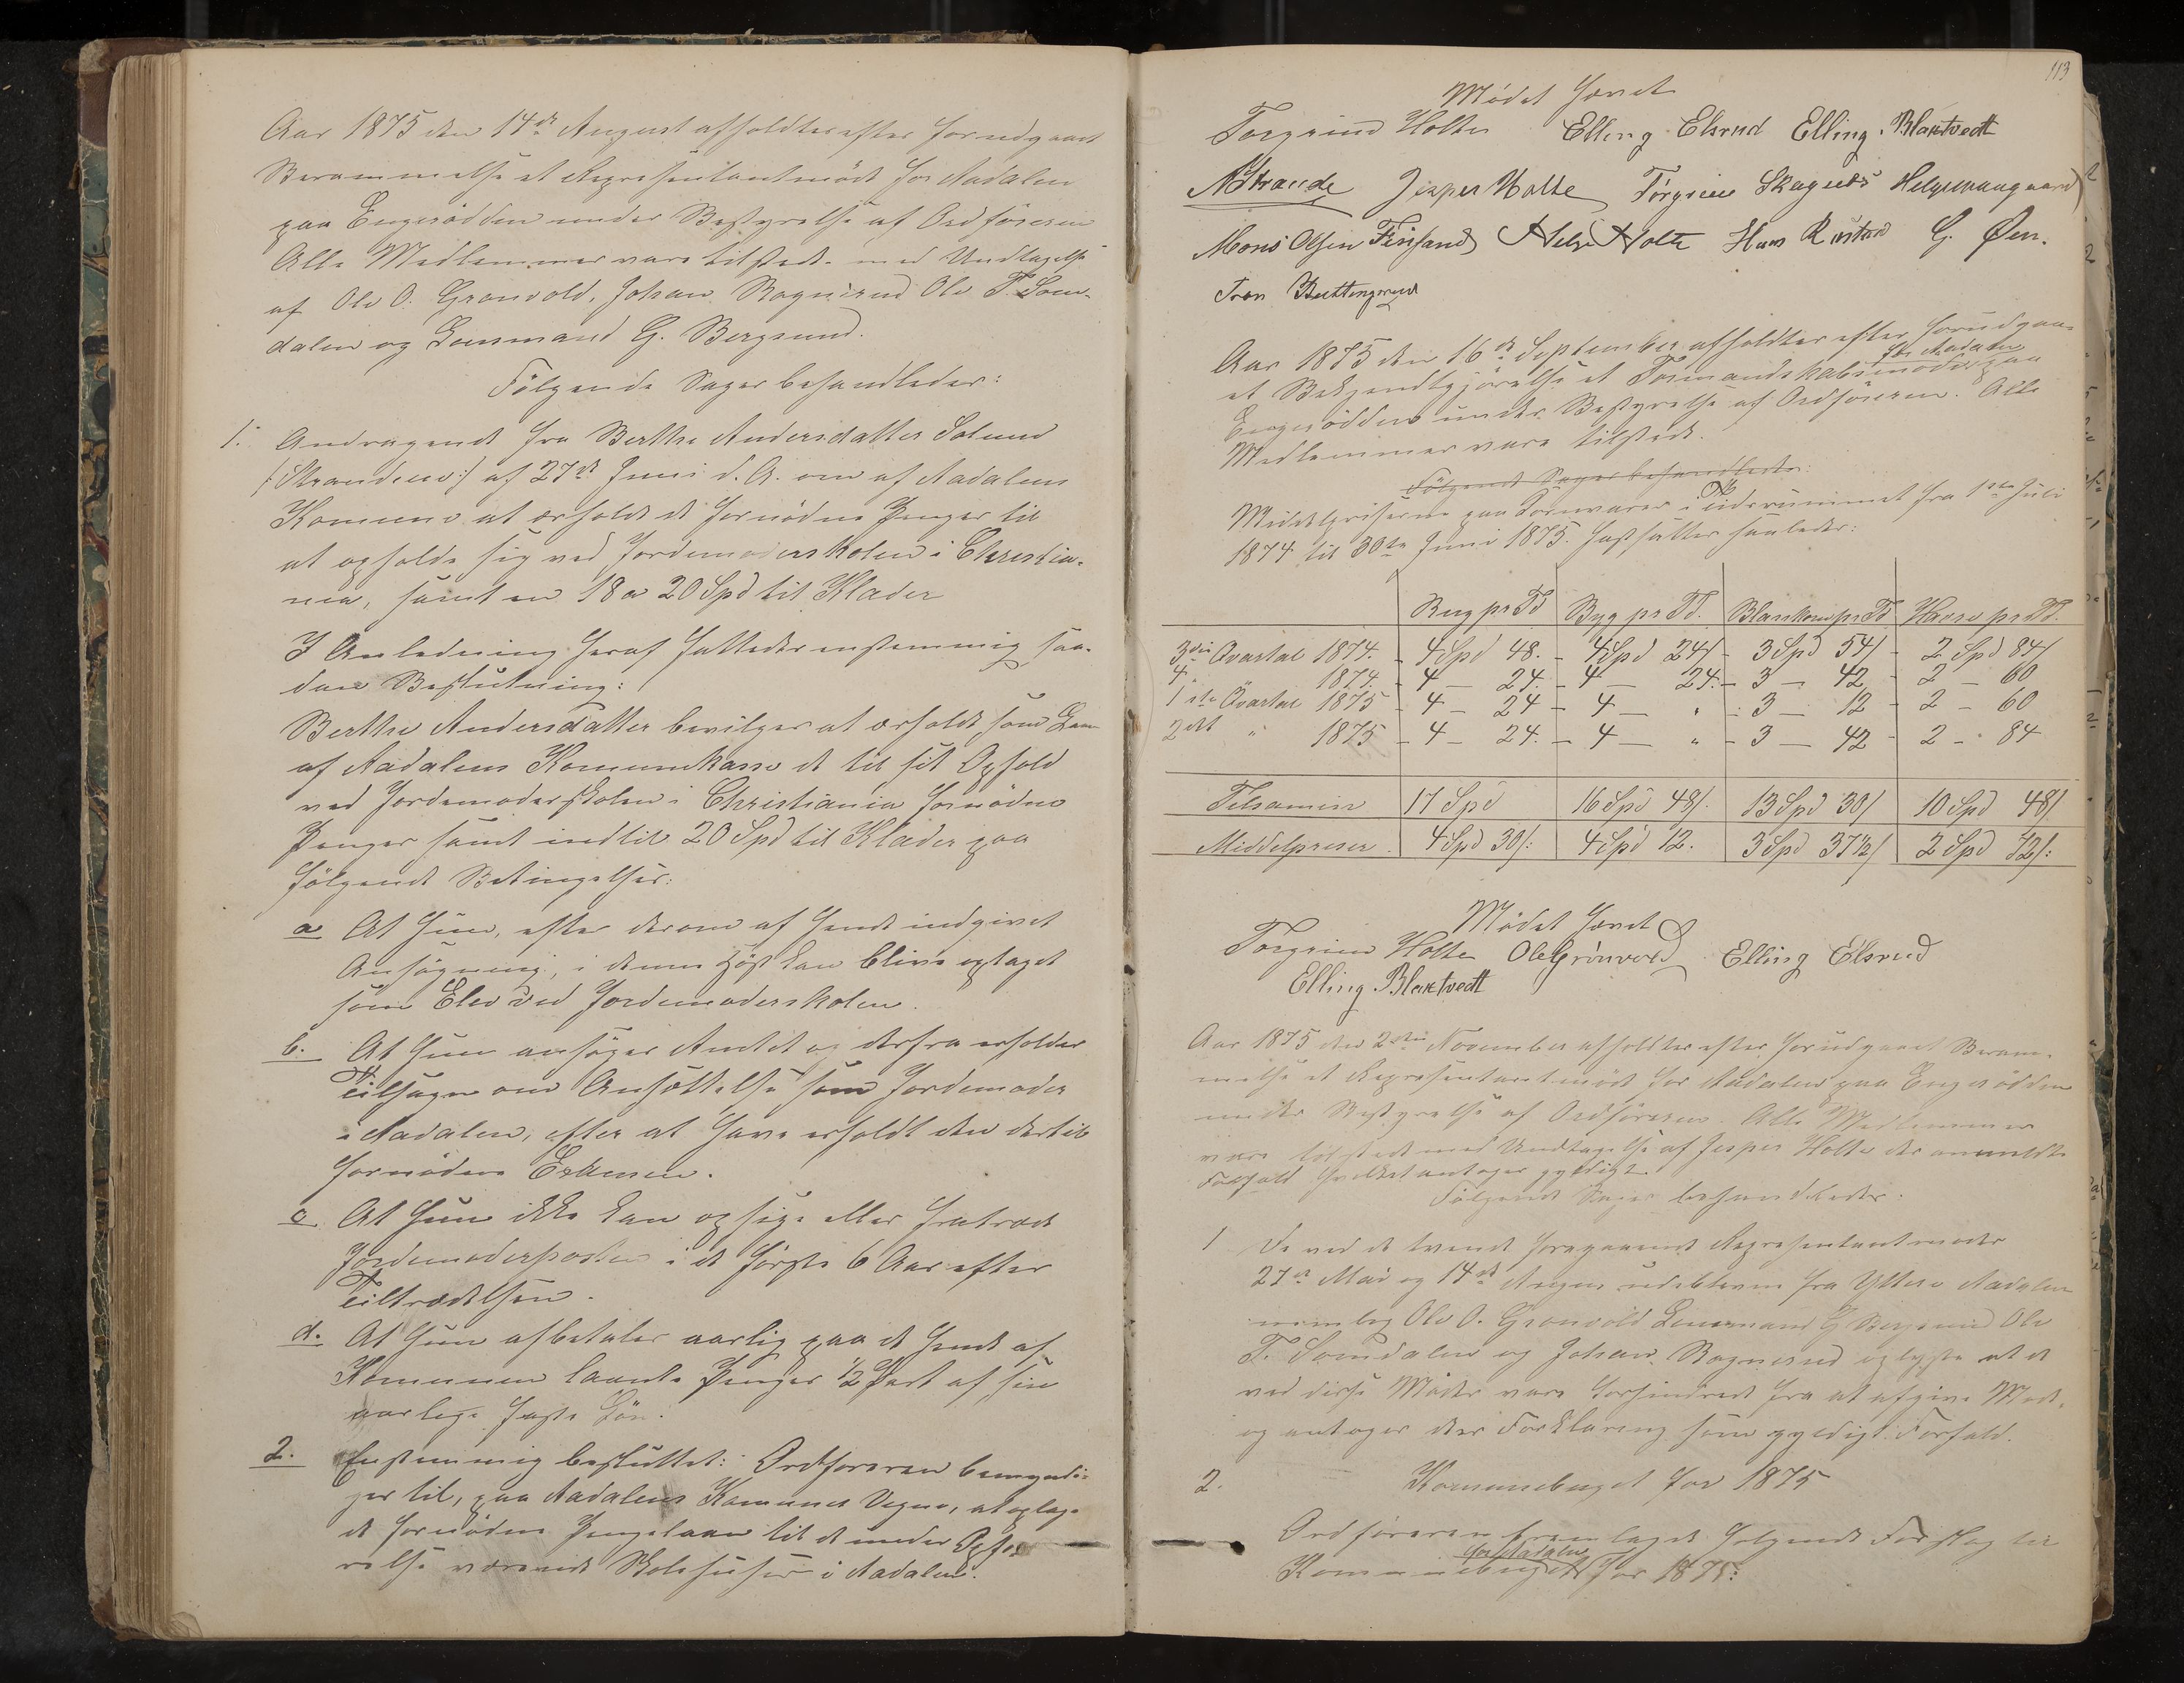 Aar 1875 den 14de August afholdtes efter forudgaaet
Berammelse et Repræsentantmöde for Aadalen
paa Engerodden under Bestyrelse af Ordföreren
Alle Medlemmer vare tilstede med Undtagelse
af Ole O. Grønvold, Johan Bagnerud Ole T. Søm-
dalen og Lensmand G. Bergsund.
Fölgende Sager behandledes:
1. Andragende fra Berthe Andersdatter Solund
/:Stranden:/ af 27de Juni d. A. om af Aadalens
Komune at erholde de fornødne Penger til
at opholde sig ved Jordemoderskolen i Christia-
nia, samt en 18 a 20 Spd til Klæder
I Anledning heraf fattedes enstemmig saa-
dan Beslutning:
Berthe Andersdatter bevilges at erholde som Laan
af Aadalens Komunekasse de til sit Ophold
ved Jordemoderskolen i Christiania fornødne
Penger samt indtil 20 Spd til Klæder paa
fölgende Betingelser:
a At hun, efter derom af hende indgivet
Ansögning, i denne Höst kan blive optaget
som Elev ved Jordemoderskolen.
b. At hun ansöger Amtet og derfra erholder
Tilsagn om Ansættelse som Jordemoder
i Aadalen, efter at have erholdt den dertil
fornødne Examen.
c At hun ikke kan opsige eller fratræde
Jordemoderposten i de förste 6 Aar efter
Tiltrædelsen.
d. At hun afbetaler aarlig paa de hende af
Komunen laante Penger 1/2 Part af sin
aarlige faste Lön.
2. Enstemmig besluttet: Ordföreren bemyndi-
ges til, paa Aadalens Komunes Vegne, at optage
de fornødne Pengelaan til de under Opfö-
relse værende Skolehuse i Aadalen.
113
Mödet hævet
Torgrim Holte Elling Elsrud Elling Blaktvedt
A Strande Jesper Holte Torgrim Skagnæs Helge
Mons Olsen Finsand Helge Holte Hans Rustad G. Øen.
Iver Buttingsrud
Aar 1875 den 16de September afholdtes efter forudgaa-
et Bekjendtgjörelse et Formandskabsmöde for Aadalen paa
Engerodden under Bestyrelse af Ordföreren. Alle
Medlemmer vare tilstede.
Fölgende Sager behandledes:
Middelpriserne paa Kornvarer i Tidsrummet fra 1ste Juli
1874 til 30te Juni 1875 fastsattes saaledes:
Rug pr Td Byg pr Td. Blankorn pr Td Havre pr Td.
3die Qvartal 1874. 4 Spd 48. 4 Spd 24/ 3 Spd 54/ 2 Spd 84/
4 " 1874. 4 — 24. 4 — 24. 3 — 42 2 — 60
1ste Qvartal 1875 4 — 24 4 — " 3 — 12 2 — 60
2det " 1875 4 — 24. 4 — " 3 — 42 2 — 84
Tilsamen 17 Spd 16 Spd 48/. 13 Spd 30/ 10 Spd 48/.
Middelpriser 4 Spd 30/: 4 Spd 12. 3 Spd 37 1/2/ 2 Spd 72/:
Mödet hævet
Torgrim Holte Ole Grönvold Elling Elsrud
Elling Blaktvedt
Aar 1875 den 2den November afholdtes efter forudgaaet Beram-
melse et Repræsentantmöde for Aadalen paa Engerodden
under Bestyrelse af Ordföreren. Alle Medlemmer
vare tilstede med Undtagelse af Jesper Holte der anmeldte
Forfald hvilket antoges gyldigt.
Fölgende Sager behandledes:
1 De ved de tvende foregaaende Repræsentantmöder
27de Mai og 14de August udeblevne fra Ytter Aadalen
nemlig Ole O. Grønvold Lensmand G Bergsund Ole
T. Sømdalen og Johan Bagnerud oplyste at de
ved disse Möder vare forhindrede fra at afgive Möde,
og antoges deres Forklaring som gyldigt Forfald.
2. Komunebuget for 1875
Ordföreren fremlagde fölgende Forslag til
Komunebuget for Aadalen for 1875: